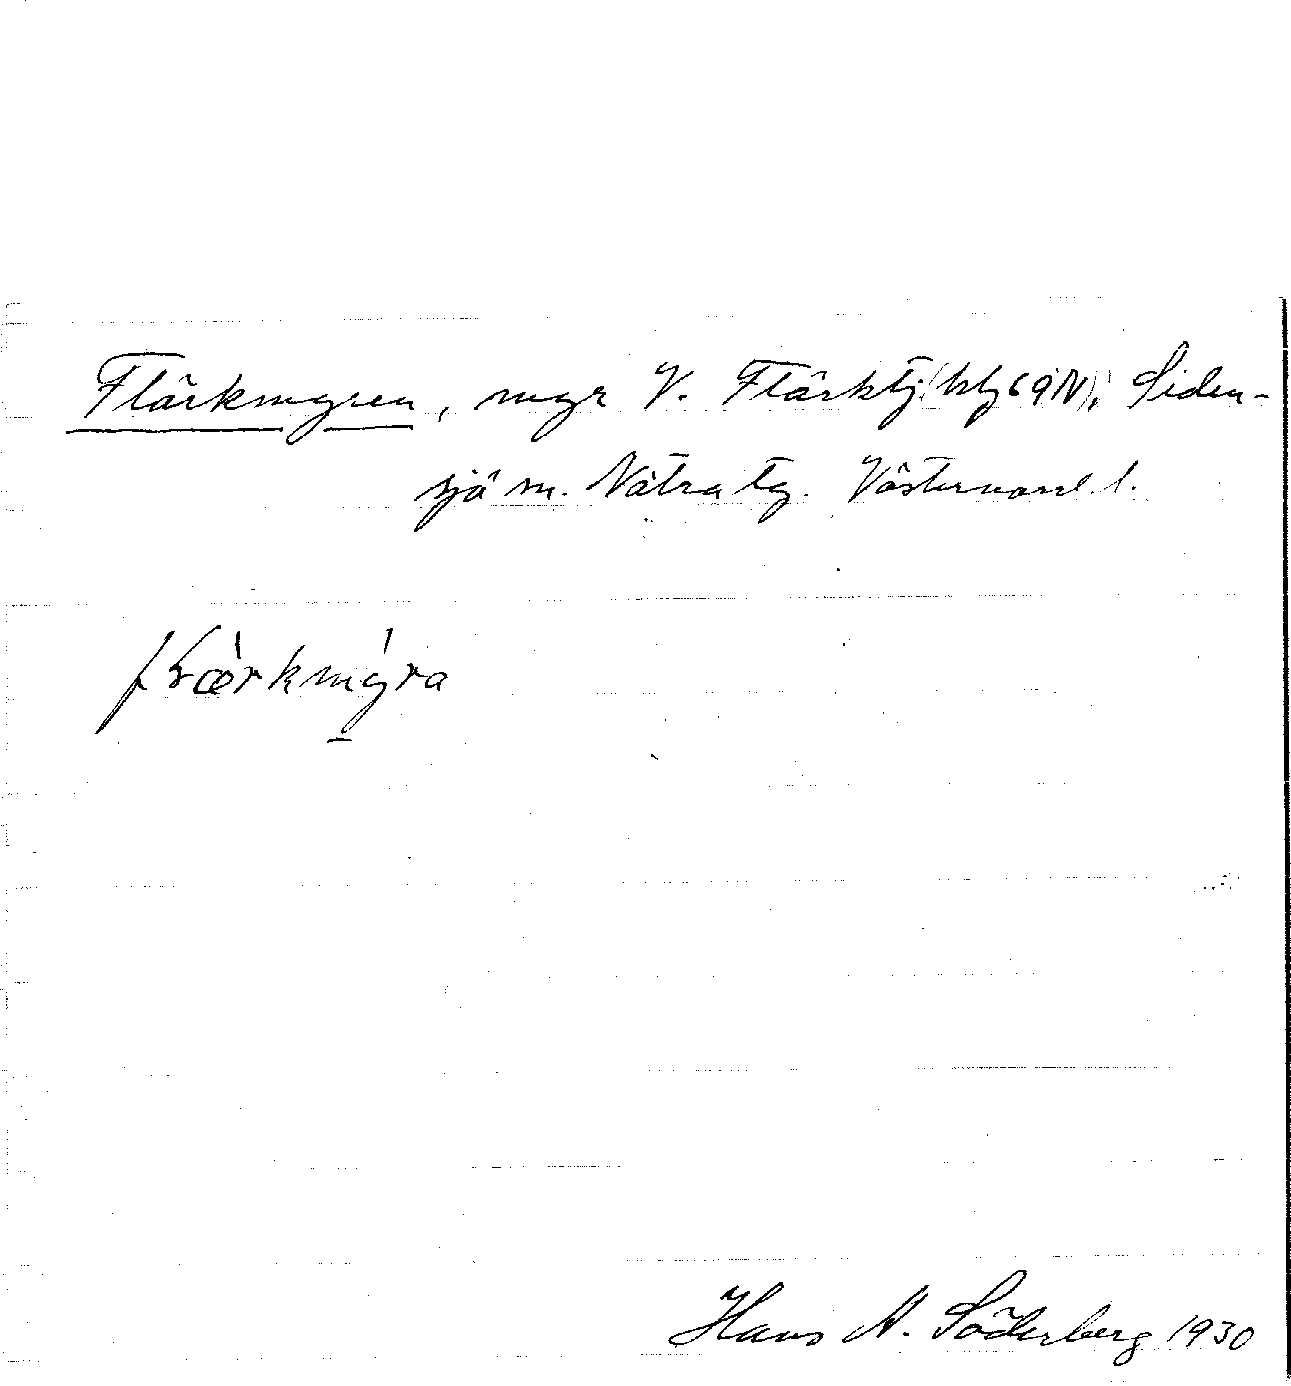 Flärkmyren, myr V. Flärktj (blg 69N), Siden-
sjö sn. Nätra tg. Västernorrl. l.
Hans A. Söderberg 1930